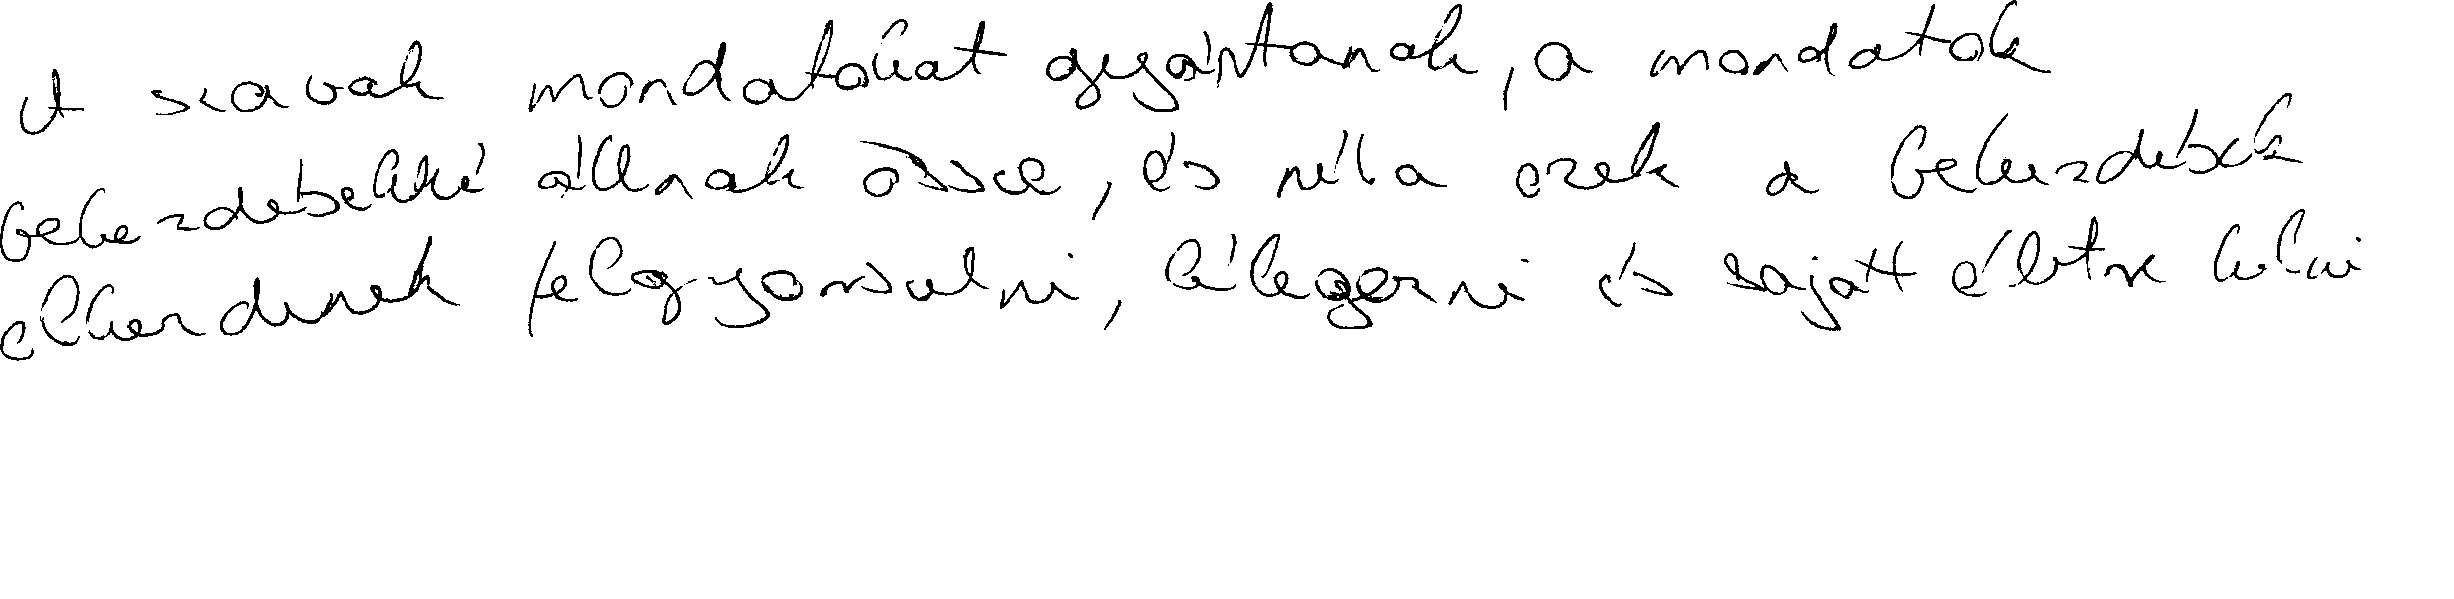 A szavak mondatokat gyártanak, a mondatok
bekezdésekké állnak össze, és néha ezek a bekezdések
elkezdenek felgyorsulni, lélegezni és saját életre kelni